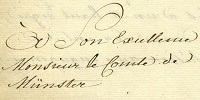 A Son Excellence
Monsieur le Comte de
Münster